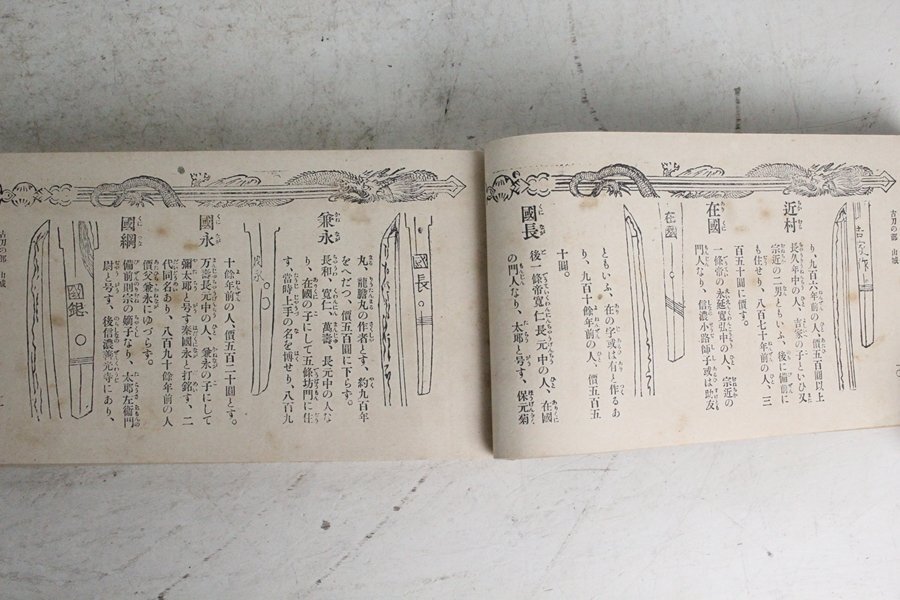 古刀の部 山城
り、九百六年前の人、價五百圓以上
近村
長久年中の人、吉家の子といひ又
宗近の二男ともいふ、後に備前に
も住せり、八百七十年前の人、三
百五十圓に價す。
在國
一條帝の永延寬弘中の人、宗近の
門人なり、信濃小路師子或は助友
在國
ともいふ、在の字或は有と作るあ
り、九百十餘年前の人、價五百五
十圓。
國長
後一條帝寬仁長元中の人、在國
の門人なり、太郎と号す、保元菊
國長
丸、龍膽丸の作者とす、約九百年
をへだつ、價五百圓に下らず。
兼永
長和、寬仁、萬壽、長元中の人な
り、在國の子にして五條坊門に住
す、當時上手の名を博せり、八百九
十餘年前の人、價五百二十圓とす。
國永
万壽長元中の人、兼永の子にして
彌太郎と号す奏國永と打銘す、二
代同名あり、八百九十餘年前の人
價父兼永にゆづらず。
國綱
備前則宗の嫡子なり、太郎左衞門
尉と号す、後信濃善元寺にあり、
古刀の部 山城